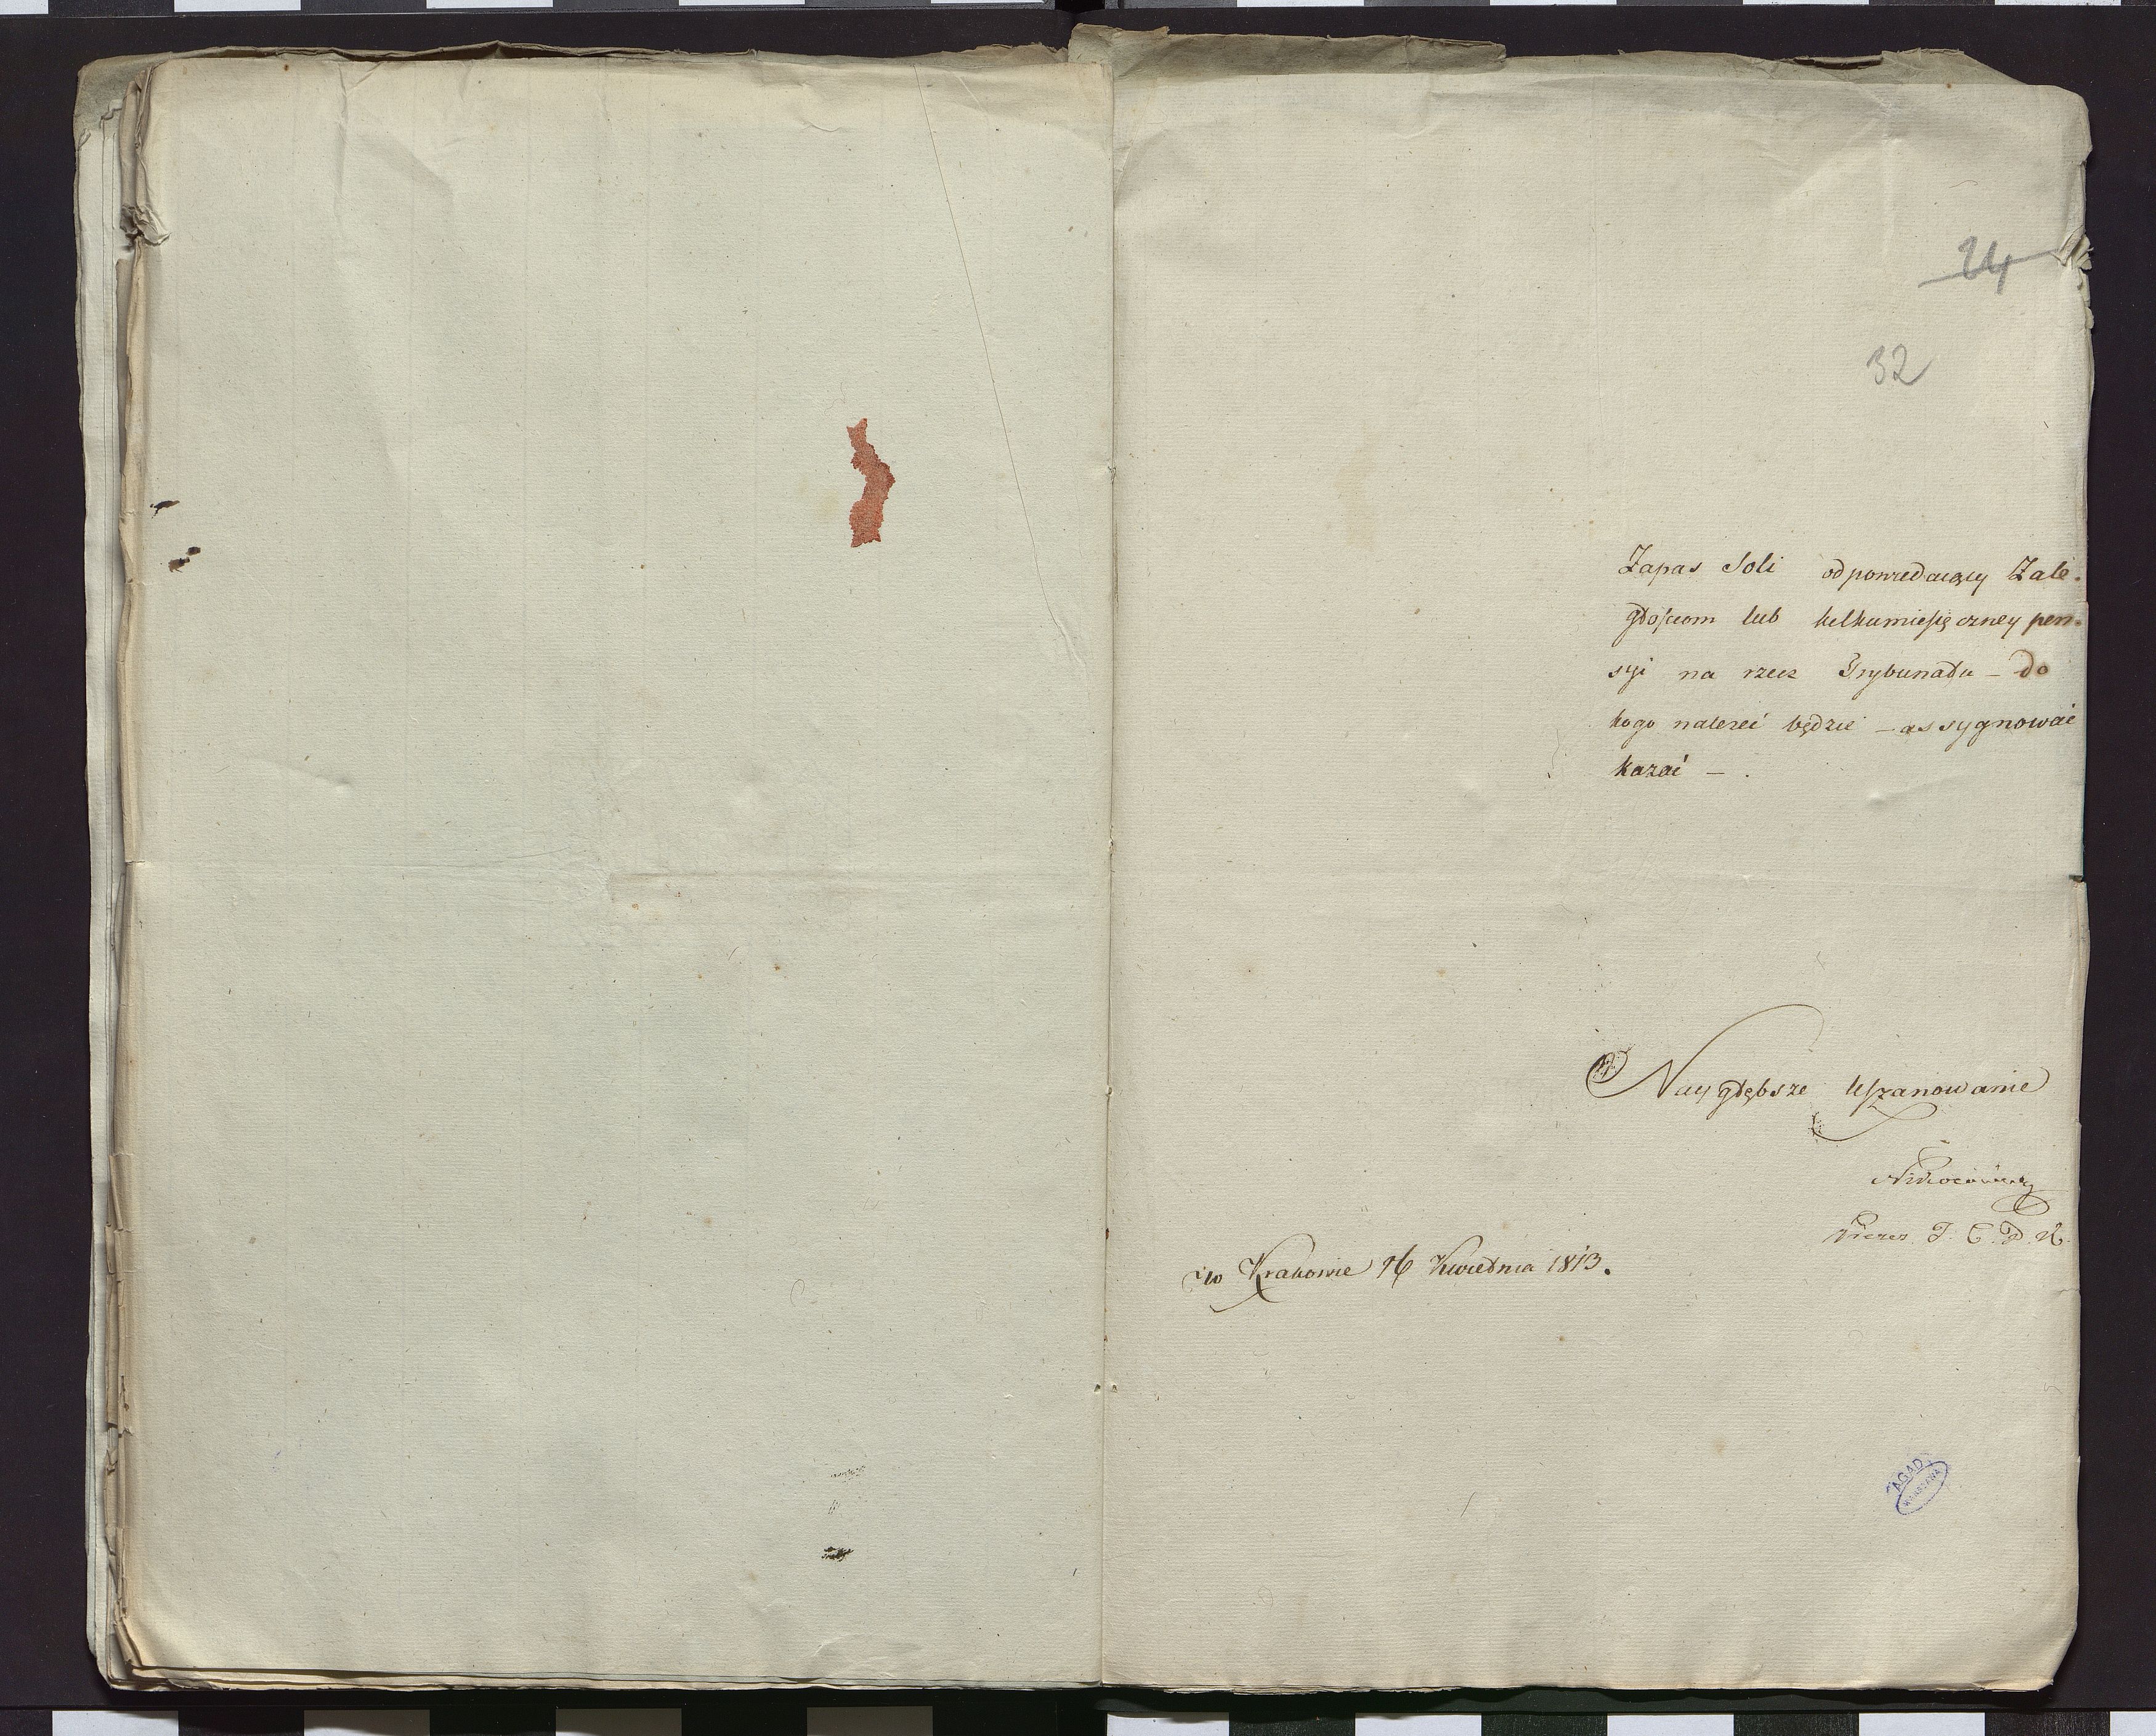 24
32
Zapas Soli odpowiedaiący Zale-
głościom lub kilkumiesięczney pen-
syi na rzecz Trybunału – do
kogo należeć będzie – assygnować
kazać – .
Naygłębsze Uszanowanie
Prezes T. C. D. K.
w Krakowie 16 Kwietnia 1813.
AGAD
WARSZAWA